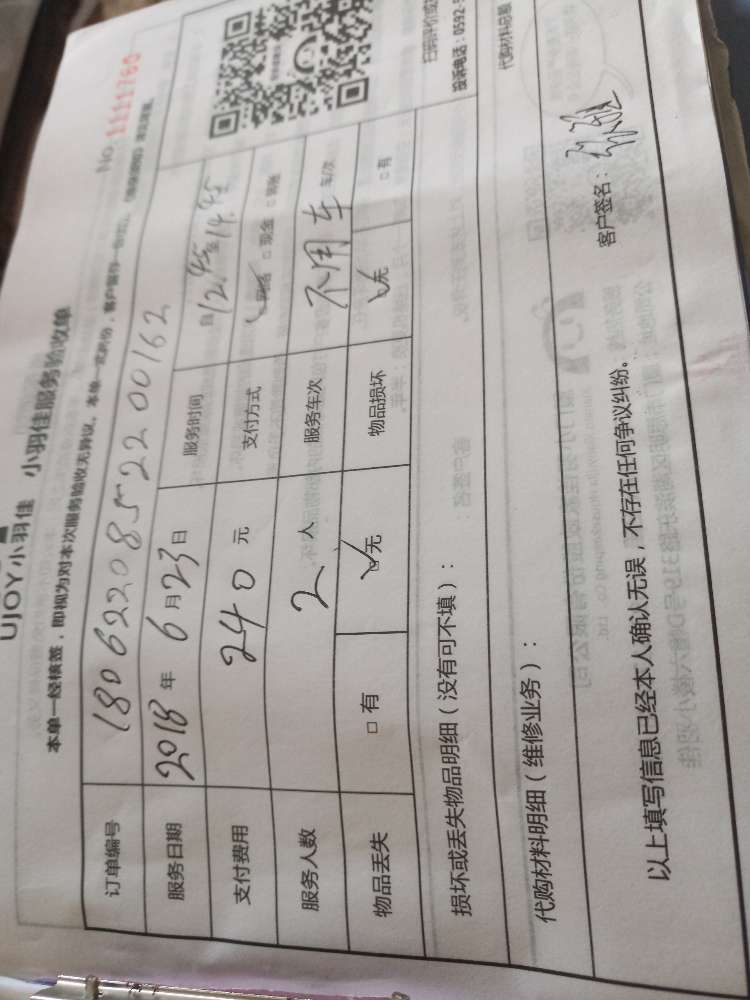 UJOY小羽佳 小羽佳服务验收单
No. 1111760
本单一经核签，即视为对本次服务验收无异议。本单一式两份，客户留存一份
订单编号 18062208522200162
服务日期 2018 年 6 月 23 日 服务时间 自 12.45 至 14.45
支付费用 240 元 支付方式 □ 现金 □
服务人数 2 人 服务车次 不用车 车/次
物品丢失 □ 有 ☑ 无 物品损坏 ☑ 无 □ 有
损坏或丢失物品明细（没有可不填）：
扫码评价或
投诉电话：0592-5
代购材料明细（维修业务）：
代购材料总额
以上填写信息已经本人确认无误，不存在任何争议纠纷。
客户签名：